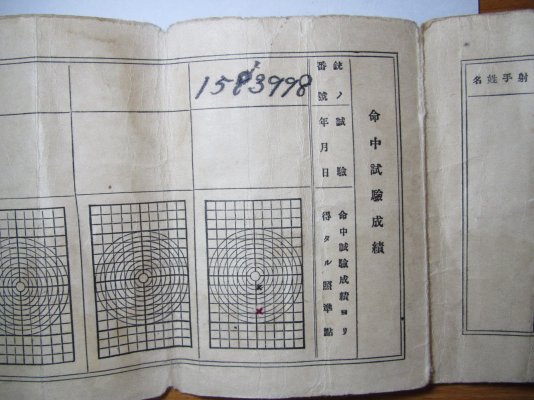 射手姓名
命中試驗成績
銃ノ
番號
試驗
年月日
命中試驗成績ヨリ
得タル照準點